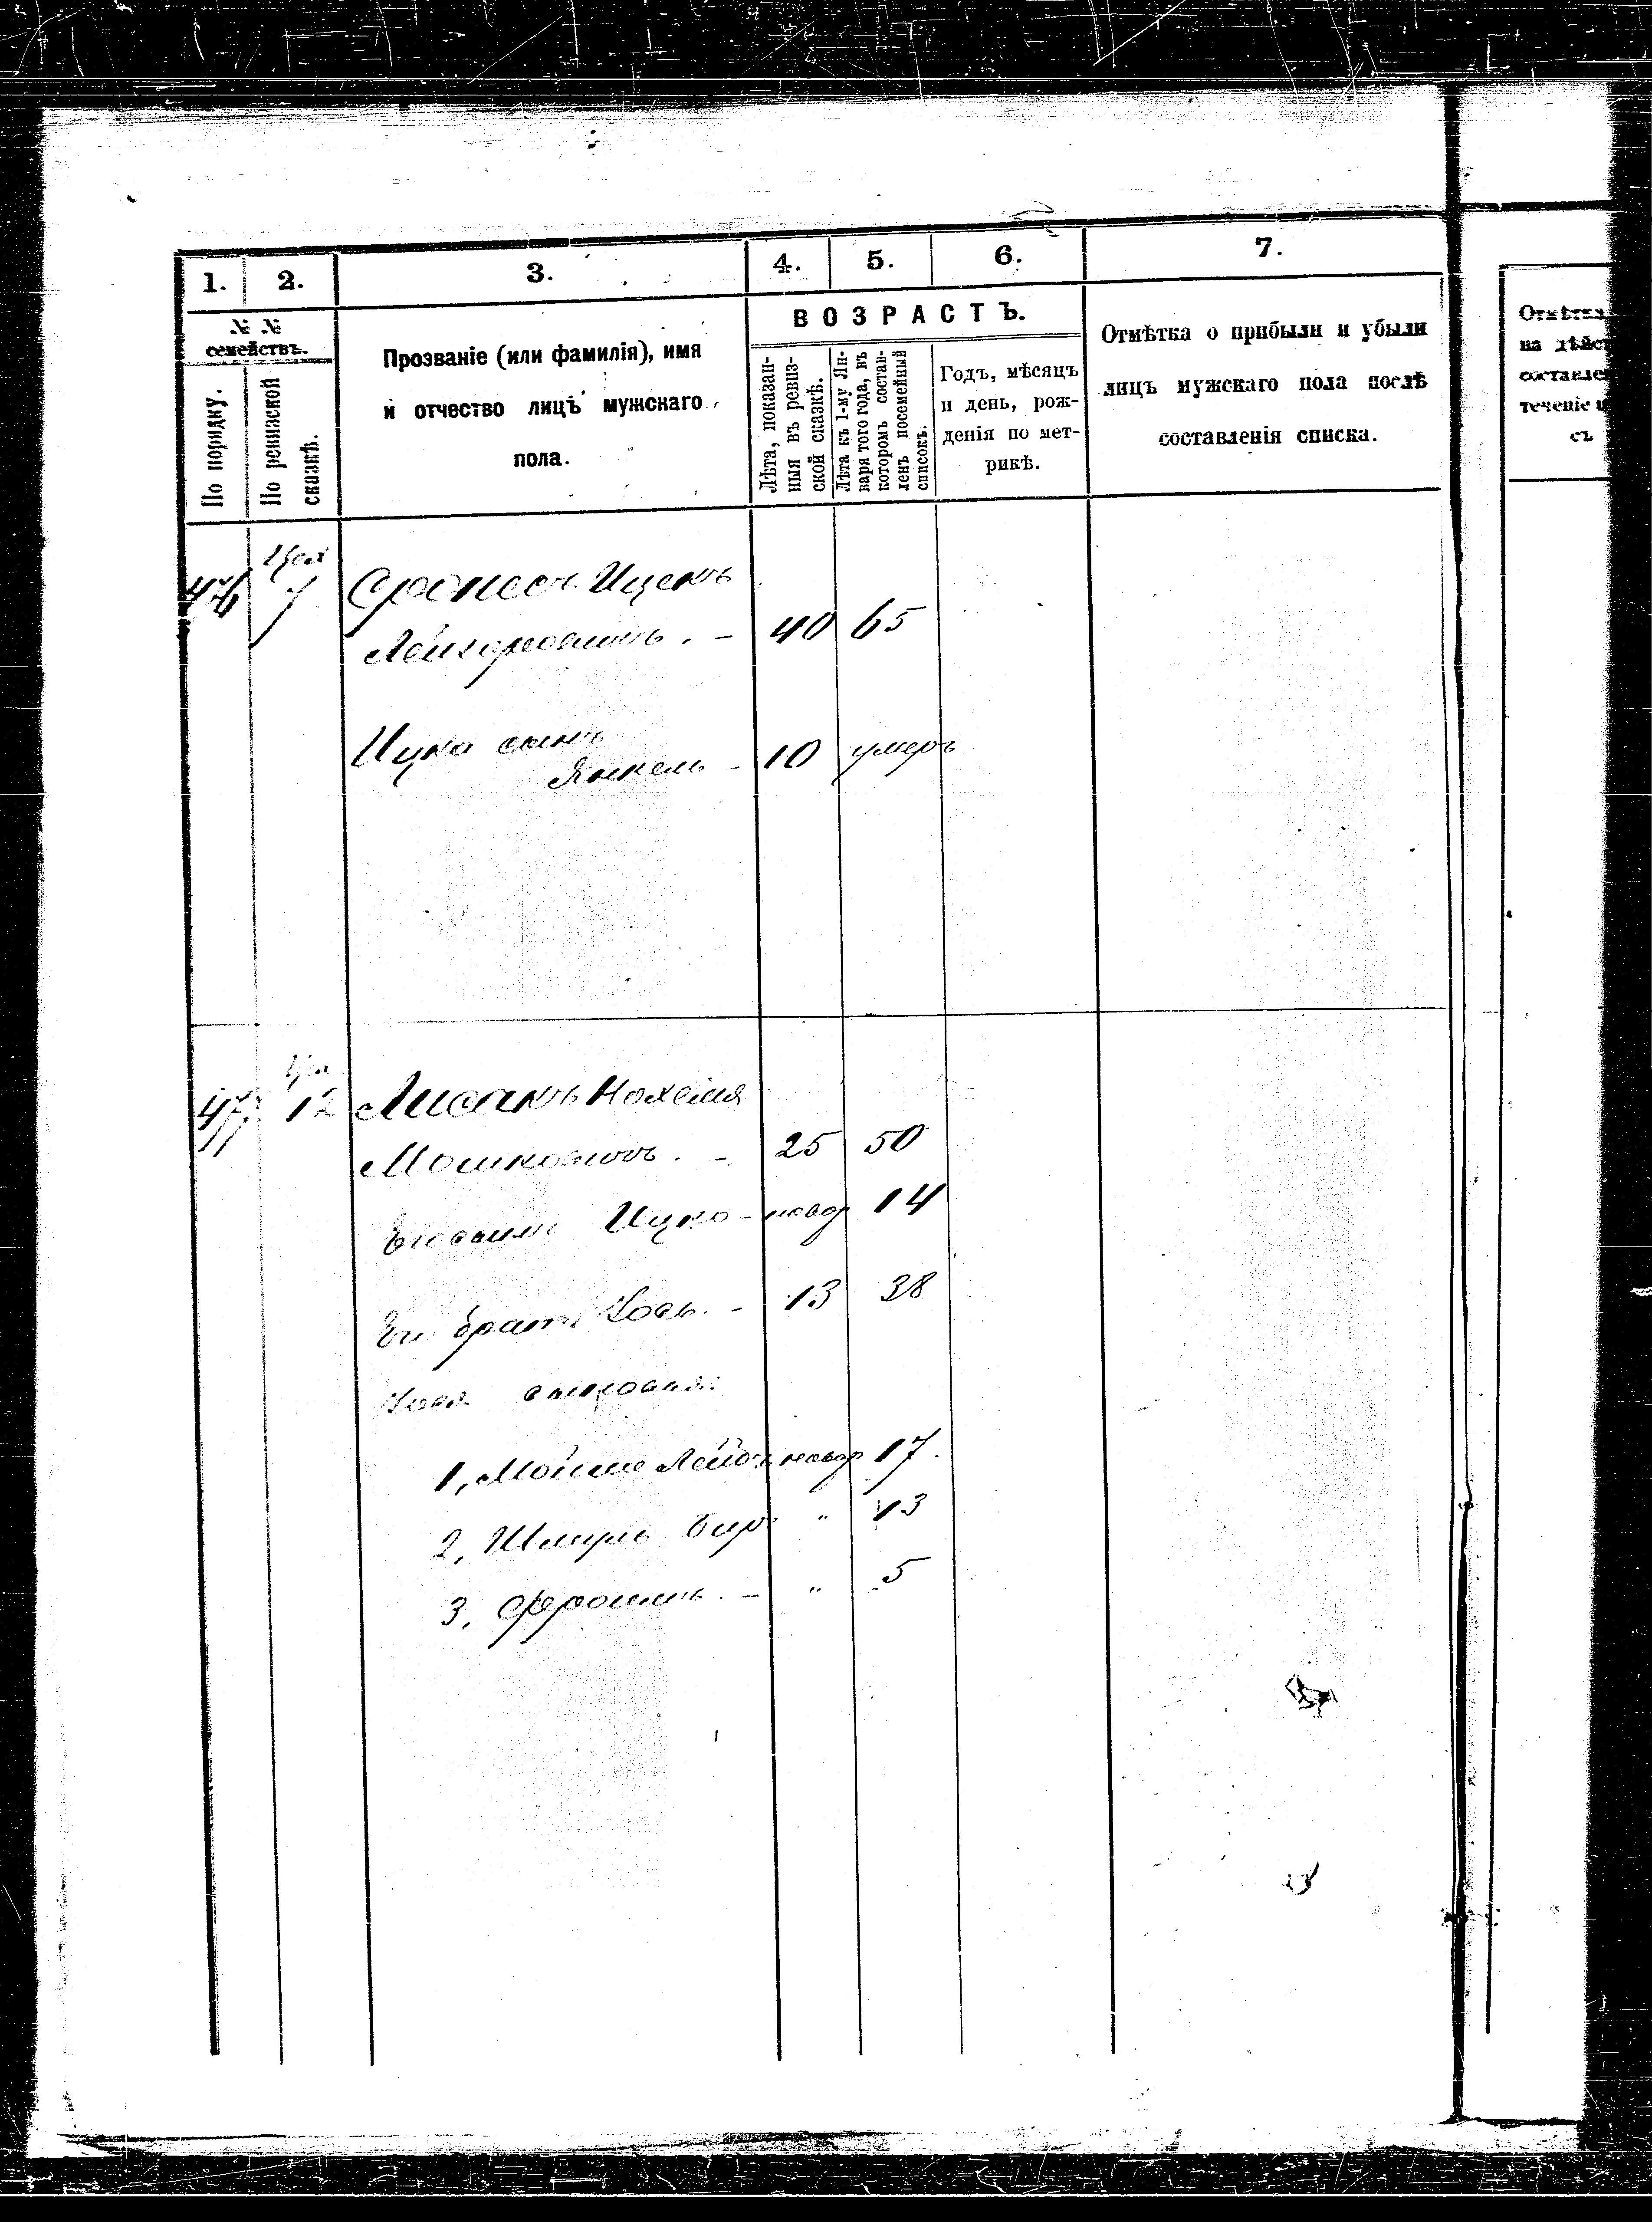 1. 2. 3. 4. 5. 6. 7.
№ №
семействъ.
По порядку.
По ревизской
сказкѣ.
Прозваніе (или фамилія), имя
и отчество лицъ мужскаго
пола.
ВОЗРАСТЪ.
Лѣта, показан-
ныя въ ревиз-
ской сказкѣ.
Лѣта къ 1-му Ян-
варя того года, въ
которомъ состав-
ленъ посемейный
списокъ.
Годъ, мѣсяцъ
и день, рож-
денія по мет-
рикѣ.
Отмѣтка о прибыли и убыли
лицъ мужскаго пола послѣ
составленія списка.
Отмѣтка
на дѣйс
составле
теченіе
съ
Цех
476 7 Ицекъ
40 65
Ицка сынъ
Янкель - 10 умеръ
Цех
477 12 Лисакъ Нохемія
Мошковичъ. - 25 50
Его сынъ Ицко - новор 14
Его братъ Іось. - 13 38
Іося сыновья:
1, Мойше Лейбъ новор 17.
2, Шмуль Беръ " 13
3, Фроимъ. - " 5